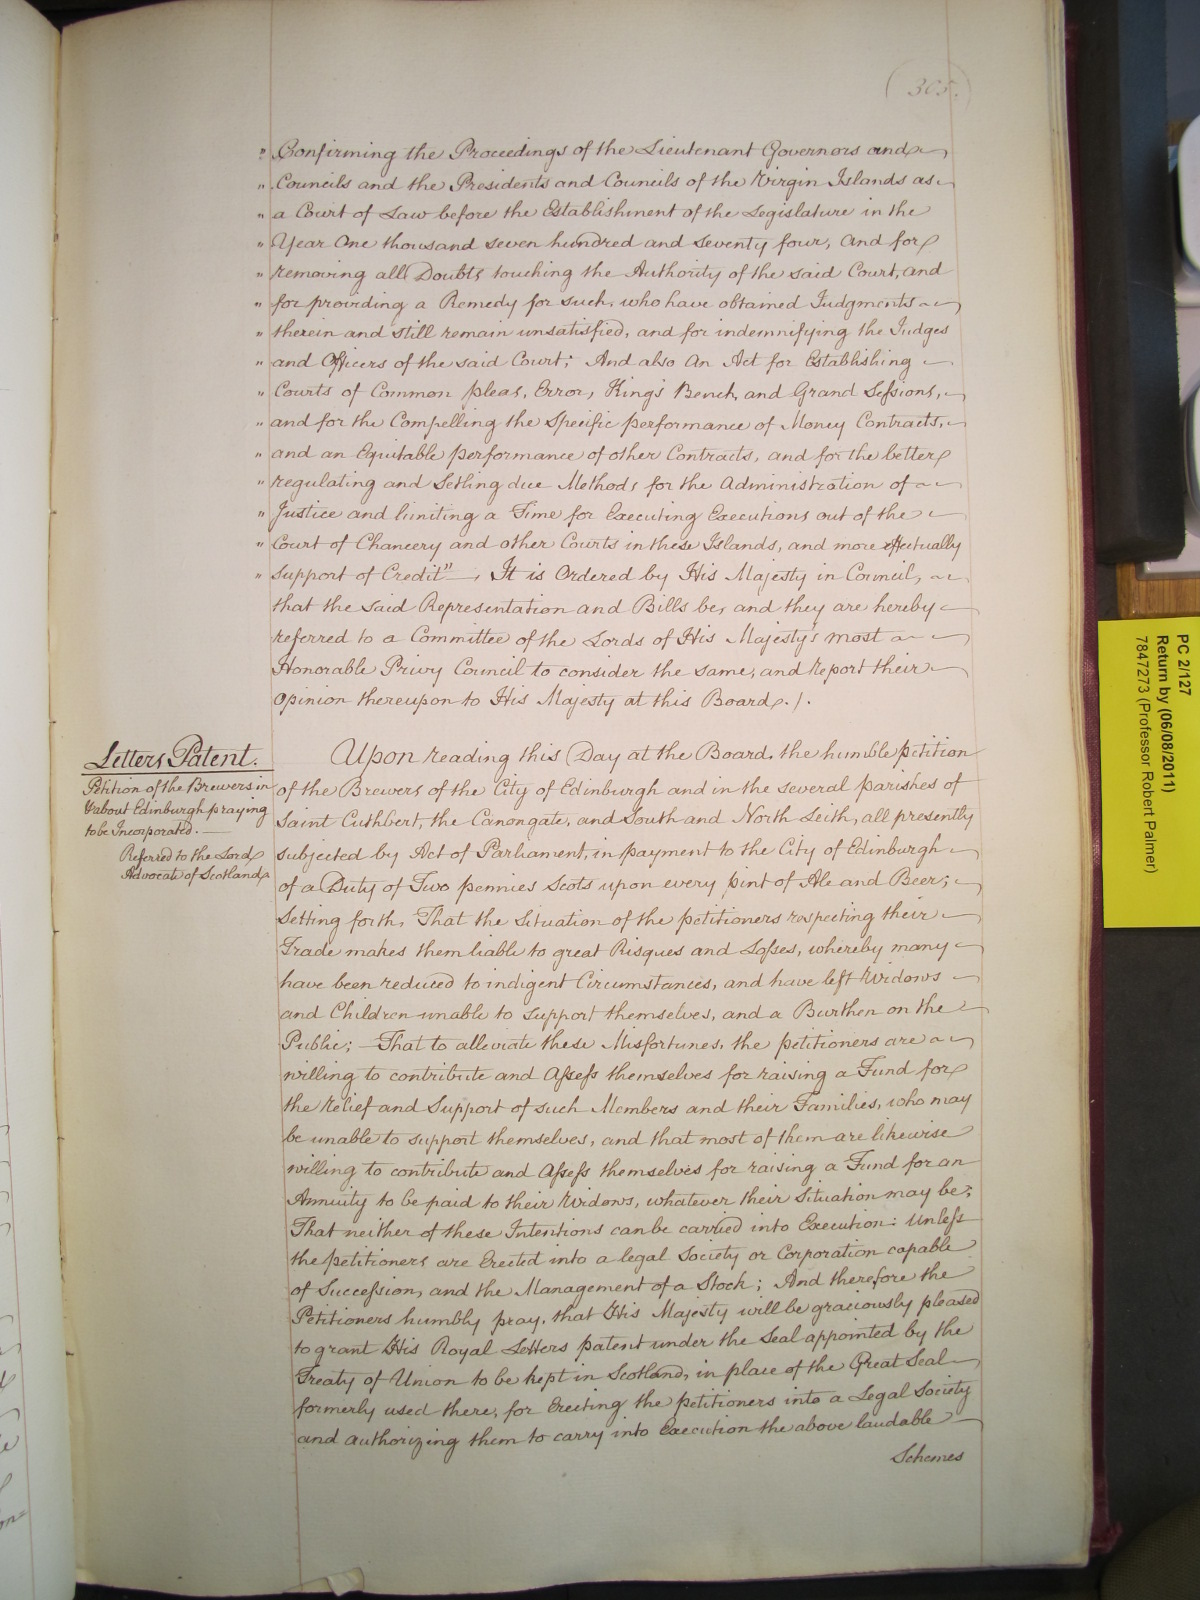 (305.)
" Confirming the Proceedings of the Lieutenant Governors and
" Councils and the Presidents and Councils of the Virgin Islands as
" a Court of Law before the Establishment of the Legislature in the
" Year One thousand seven hundred and seventy four, and for
" removing all Doubts touching the Authority of the said Court, and
" for providing a Remedy for such, who have obtained Judgments
" therein and still remain unsatisfied, and for indemnifying the Judges
" and Officers of the said Court; And also An Act for Establishing
" Courts of Common pleas, Error, King's Bench, and Grand Sessions,
" and for the Compelling the Specific performance of Money Contracts,
" and an Equitable performance of other Contracts, and for the better
" regulating and Setling due Methods for the Administration of
" Justice and limiting a Time for Executing Executions out of the
" Court of Chancery and other Courts in these Islands, and more effectually
" support of Credit" — It is Ordered by His Majesty in Council,
that the said Representation and Bills be, and they are hereby
referred to a Committee of the Lords of His Majesty's most
Honorable Privy Council to consider the same, and Report their
Opinion thereupon to His Majesty at this Board./.
Letters Patent.
Petition of the Brewers in
& about Edinburgh praying
to be Incorporated.
Referred to the Lord
Advocate of Scotland
Upon reading this Day at the Board, the humble petition
of the Brewers of the City of Edinburgh and in the several parishes of
Saint Cuthbert, the Canongate, and South and North Leith, all presently
subjected by Act of Parliament, in payment to the City of Edinburgh
of a Duty of Two pennies Scots upon every pint of Ale and Beer;
Setting forth, That the Situation of the petitioners respecting their
Trade makes them liable to great Risques and Losses, whereby many
have been reduced to indigent Circumstances, and have left Widows
and Children unable to support themselves, and a Burthen on the
Public; — That to alleviate these Misfortunes, the petitioners are
willing to contribute and Assess themselves for raising a Fund for
the Relief and Support of such Members and their Families, who may
be unable to support themselves, and that most of them are likewise
willing to contribute and Assess themselves for raising a Fund for an
Annuity to be paid to their Widows, whatever their Situation may be;
That neither of these Intentions can be carried into Execution: Unless
the petitioners are Erected into a legal Society or Corporation capable
of Succession, and the Management of a Stock; And therefore the
Petitioners humbly pray, that His Majesty will be graciously pleased
to grant His Royal Letters patent under the Seal appointed by the
Treaty of Union to be kept in Scotland, in place of the Great Seal
formerly used there, for Erecting the petitioners into a Legal Society
and authorizing them to carry into Execution the above laudable
Schemes
PC 2/127
Return by (06/08/2011)
7847273 (Professor Robert Palmer)